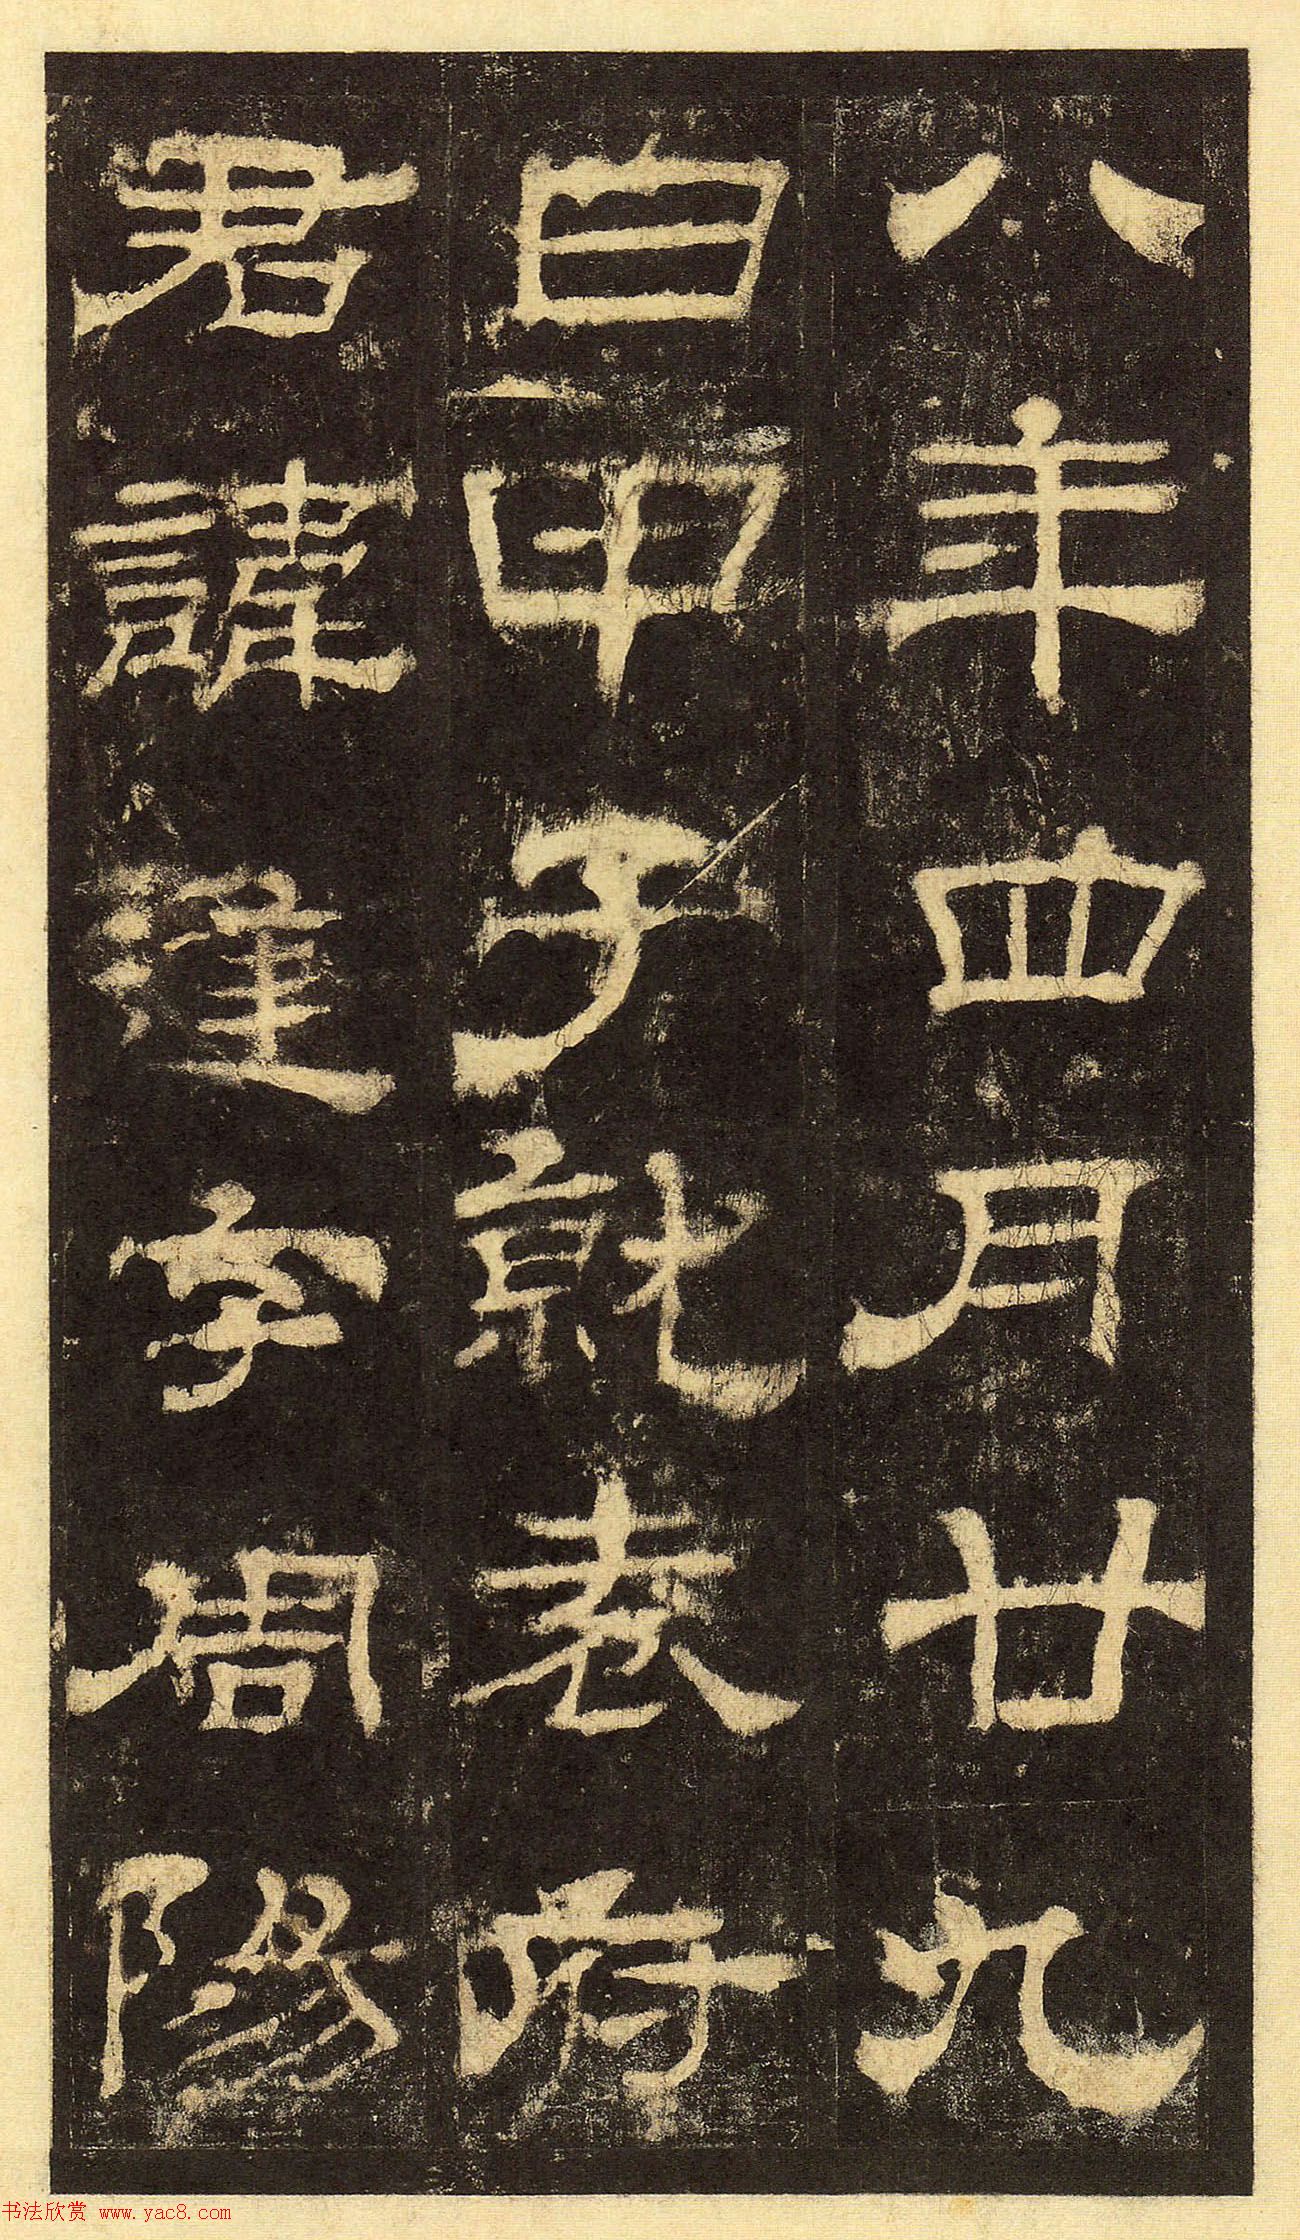 八年四月廿九
日甲子就袁府
君諱逢字周陽
书法欣赏 www.yac8.com